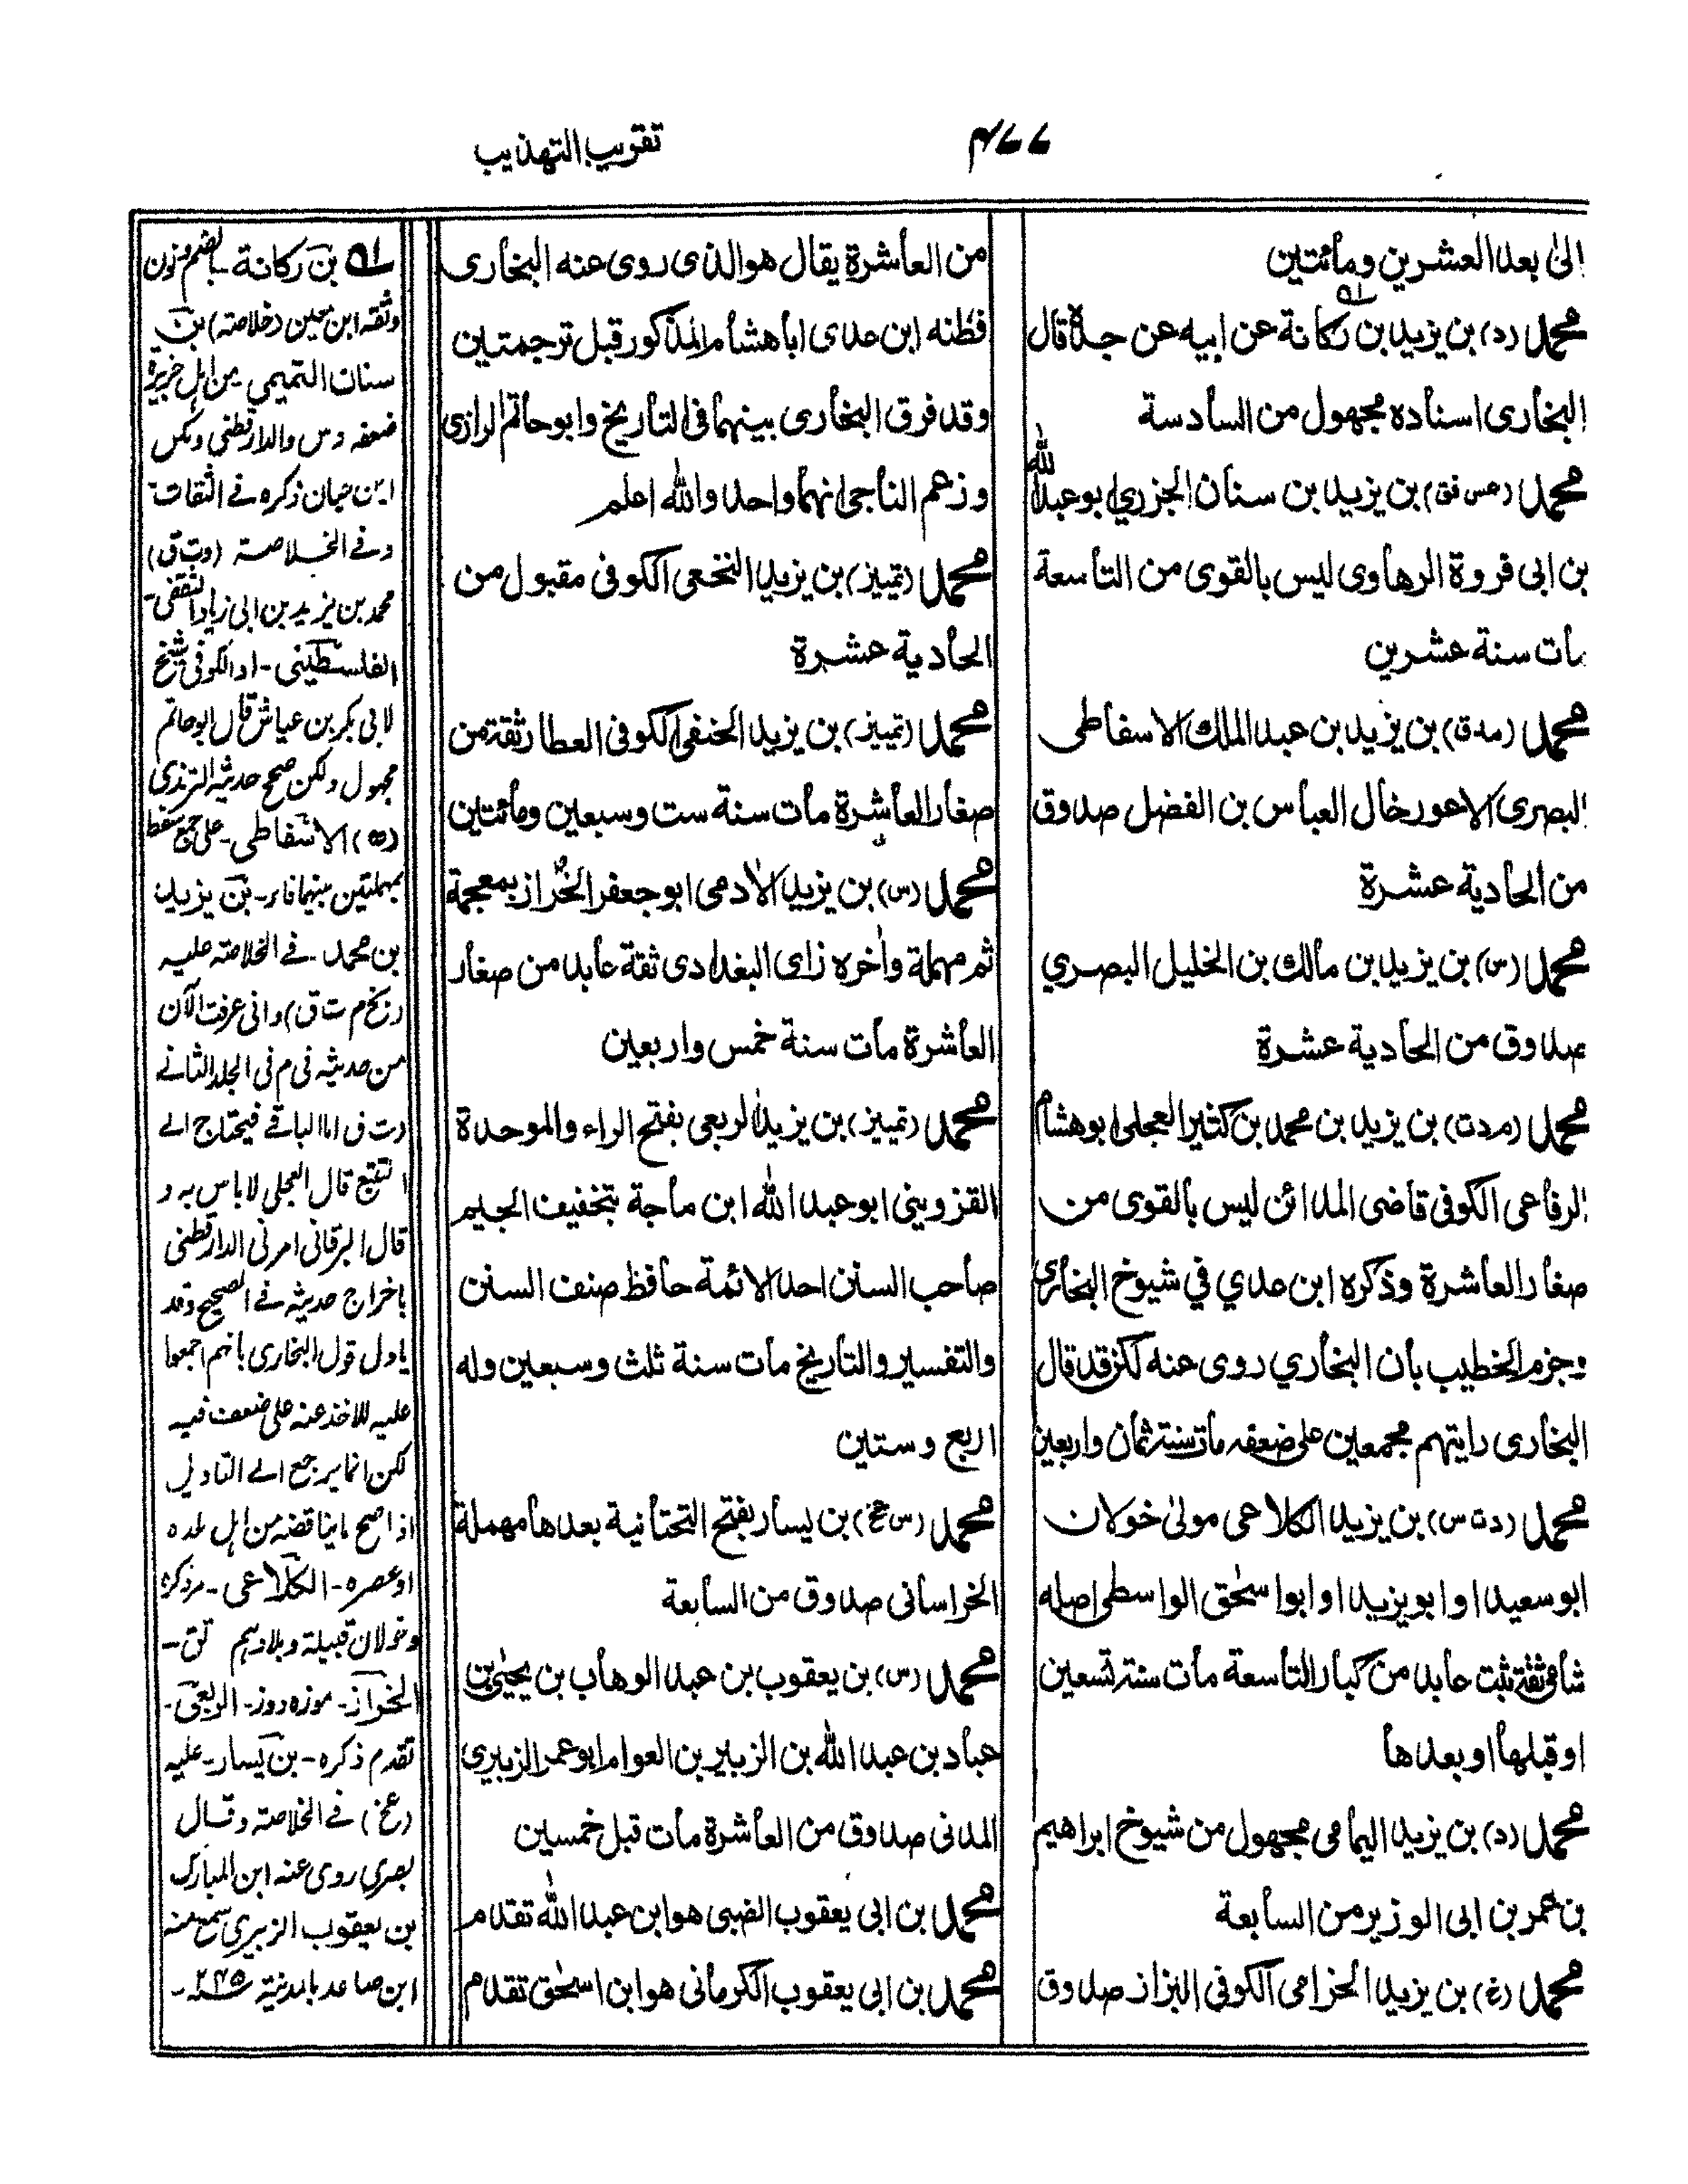 ۴۷۷
تقريب التهذيب
الى بعد العشرين ومائتين
محمد (د) بن يزيد بن ركانة عن ابيه عن جده قال
البخارى اسناده مجهول من السادسة
محمد (عس فق) بن يزيد بن سنان الجزري ابو عبد الله
بن ابى فروة الرهاوى ليس بالقوى من التاسعة
مات سنة عشرين
محمد (مدق) بن يزيد بن عبد الملك الاسفاطى
البصرى الاعور خال العباس بن الفضل صدوق
من الحادية عشرة
محمد (س) بن يزيد بن مالك بن الخليل البصري
صدوق من الحادية عشرة
محمد (مدت) بن يزيد بن محمد بن كثير العجلى ابو هشام
الرفاعى الكوفى قاضى المدائن ليس بالقوى من
صغار العاشرة وذكره ابن عدي في شيوخ البخارى
وجزم الخطيب بان البخاري روى عنه لكن قد قال
البخارى رايتهم مجمعين على ضعفه مات سنة ثمان واربعين
محمد (دت س) بن يزيد الكلاعى مولى خولان
ابو سعيد او ابو يزيد او ابو اسحق الواسطى اصله
شامى ثقة ثبت عابد من كبار التاسعة مات سنة تسعين
او قبلها او بعدها
محمد (د) بن يزيد اليمامى مجهول من شيوخ ابراهيم
بن عمر بن ابى الوزير من السابعة
محمد (غ) بن يزيد الحزامى الكوفى البزاز صدوق
من العاشرة يقال هو الذى روى عنه البخارى
فظنه ابن عدى ابا هشام المذكور قبل ترجمتين
وقد فرق البخارى بينهما فى التاريخ وابو حاتم الرازى
وزعم الباجى انهما واحد والله اعلم
محمد (تمييز) بن يزيد النخعى الكوفى مقبول من
الحادية عشرة
محمد (تمييز) بن يزيد الحنفى الكوفى العطار ثقة من
صغار العاشرة مات سنة ست وسبعين ومائتين
محمد (س) بن يزيد الادمى ابو جعفر الخراز بمعجمة
ثم مهملة واخره زاى البغدادى ثقة عابد من صغار
العاشرة مات سنة خمس واربعين
محمد (تمييز) بن يزيد الربعى بفتح الراء والموحدة
القزوينى ابو عبد الله ابن ماجة بتخفيف الجيم
صاحب السنن احد الائمة حافظ صنف السنن
والتفسير والتاريخ مات سنة ثلث وسبعين وله
اربع وستين
محمد (س عخ) بن يسار بفتح التحتانية بعدها مهملة
الخراسانى صدوق من السابعة
محمد (س) بن يعقوب بن عبد الوهاب بن يحيى بن
عباد بن عبد الله بن الزبير بن العوام ابو عمر الزبيري
المدنى صدوق من العاشرة مات قبل خمسين
محمد بن ابى يعقوب الضبى هو ابن عبد الله تقدم
محمد بن ابى يعقوب الكرمانى هو ابن اسحق تقدم
بن ركانة - بضم ونون
وثقه ابن معين (خلاصته) بن
سنان التميمى من اهل جزيرة
ضعفه دس والدارقطنى ولكن
ابن حبان ذكره فے الثقات
وفے الخلاصة (وت ق)
محمد بن يزيد بن ابى زياد الثقفى -
الفلسطينى - او الكوفى شيخ
لابى بكر بن عياش قال ابو حاتم
مجهول ولكن صحح حديثه الترمذى
الاسفاطى - على جمع سفط
بمهملتين بينهما فاء - بن يزيد
بن محمد - فے الخلاصه عليه
م ت ق) وانى عرفت الآن
من حديثه فى م فى الجلد الثانے
دت ق اما الباقے فيحتاج الے
التتبع قال العجلى لا باس به و
قال البرقانى امرنى الدارقطنى
باخراج حديثه فے الصحيح وقد
ياول قول البخارى بانهم اجمعوا
عليه للاخذ عنه على ضعف فيه
لكن انما يرجع الے التاويل
اذا صح ما يناقضه من اهل بلده
او عصره - الكلاعى - مر ذكره
وخولان قبيلة وبلادهم تق -
الخراز - موزه دوز - الربعى -
تقدم ذكره - بن يسار - عليه
(عخ) فے الخلاصته وقال
بصرى روى عنه ابن المبارك
بن يعقوب الزبيرى سمع منه
ابن صاعد بالمدينة سنة ۲۴۵ -